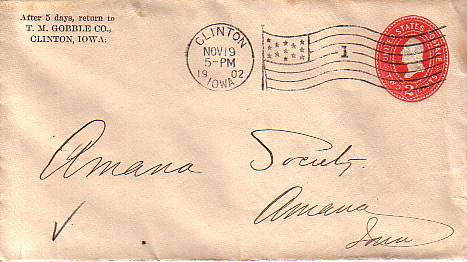 After 5 days, return to
T. M. GOBBLE CO.,
CLINTON, IOWA.
CLINTON
NOV 19
5-PM
1902
IOWA
1
UNITED STATES POSTAGE
2
Amana Society
Amana
Iowa